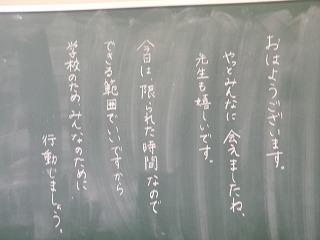 おはようございます。
やっとみんなに会えましたね、
先生も嬉しいです。
今日は、限られた時間なので
できる範囲でいいですから
学校のためみんなのために
行動しましょう。